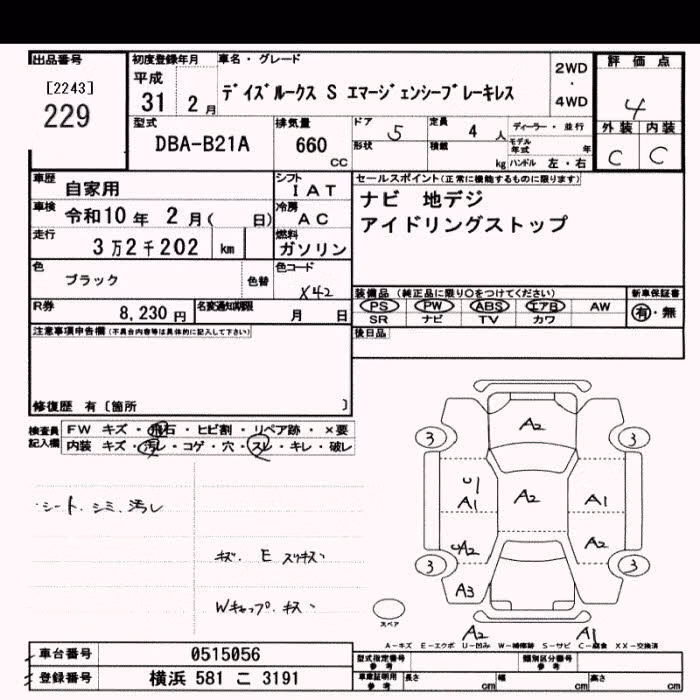 出品番号
[2243]
229
初度登録年月
平成
31 2月
車名・グレード
デイズルークス S エマージェンシーブレーキレス
2WD
・
4WD
評価点
4
外装 内装
C C
型式
DBA-B21A
排気量
660
cc
ドア 5
定員 4人
ディーラー・並行
形状
積載
kg
モデル年式 年
ハンドル 左・右
車歴 自家用
シフト IAT
車検 令和10年 2月( 日)
冷房 AC
走行 3万2千202 km
燃料 ガソリン
色 ブラック
色替
色コード X42
R券 8,230円
名変通知期限 月 日
セールスポイント(正常に機能するものに限ります)
ナビ 地デジ
アイドリングストップ
装備品(純正品に限り○をつけてください)
新車保証書
PS PW ABS エアB AW
有・無
SR ナビ TV カワ
後日品
注意事項申告欄(不具合内容等は具体的に記入して下さい)
修復歴 有〔箇所 〕
検査員記入欄
FW キズ・飛石・ヒビ割・リペア跡・×要
内装 キズ・汚レ・コゲ・穴・スレ・キレ・破レ
・シート、シミ、汚レ
キズ、E スリキズ、
Wキャップ、キズ、
A2
3 3
U1
A1 A2 A1
UA2 A2
3 3
A3
スペア
A2 A1
A-キズ E-エクボ U-凹み W-補修跡 S-サビ C-腐食 XX-交換済
車台番号 0515056
登録番号 横浜 581 こ 3191
型式指定番号 参考
類別区分番号 参考
車庫証明用 参考
長さ cm
幅 cm
高さ cm